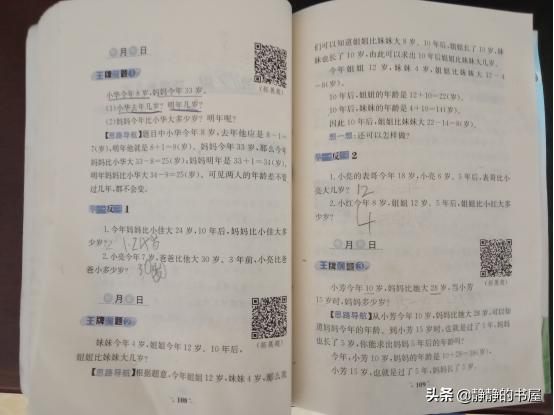 月 日
王牌例题①
(拓展题)
小华今年8岁,妈妈今年33岁。
(1)小华去年几岁?明年几岁?
(2)妈妈今年比小华大多少岁?明年呢?
【思路导航】题目中小华今年8岁,去年他应是8-1=
7(岁),明年他就是8+1=9(岁)。妈妈今年33岁,那么今年
妈妈比小华大33-8=25(岁),妈妈明年是33+1=34(岁),
明年妈妈比小华大34-9=25(岁)。可见两人的年龄差不管
过几年,都不会变。
举一反三 1
1.今年妈妈比小佳大24岁,10年后,妈妈比小佳大多
少岁?
2.小亮今年7岁,爸爸比他大30岁。3年前,小亮比爸
爸小多少岁? 30岁
月 日
王牌例题②
妹妹今年4岁,姐姐今年12岁。10年后,
姐姐比妹妹大几岁?
【思路导航】根据题意,今年姐姐12岁,妹妹4岁,那么我
108
们可以知道姐姐比妹妹大8岁。10年后,姐姐长了10岁,妹
妹也长了10岁,由此可以求出10年后姐姐比妹妹大几岁。
今年姐姐12岁,妹妹4岁,姐姐比妹妹大12-4
=8(岁)。
10年后,姐姐的年龄是12+10=22(岁)。
10年后,妹妹的年龄是4+10=14(岁)。
因此10年后,姐姐比妹妹大22-14=8(岁)。
想一想:还可以怎样做?
举一反三 2
1.小亮的表哥今年18岁,小亮6岁。5年后,表哥比小
亮大几岁? 12
2.小红今年8岁,姐姐12岁。5年后,姐姐比小红大多
少岁? 4
月 日
王牌例题③
(拓展题)
小芳今年10岁,妈妈比她大28岁,当小芳
15岁时,妈妈多少岁?
【思路导航】从小芳今年10岁,妈妈比她大28岁,可以知
道妈妈今年的年龄。到小芳15岁时,也就是过了5年,妈妈
也长了5岁,你能求出妈妈5年后的年龄吗?
今年,小芳10岁,妈妈的年龄是10+28=38(岁)。
小芳15岁,也就是过了5年,妈妈也长了5岁,
109
头条 @静静的书屋